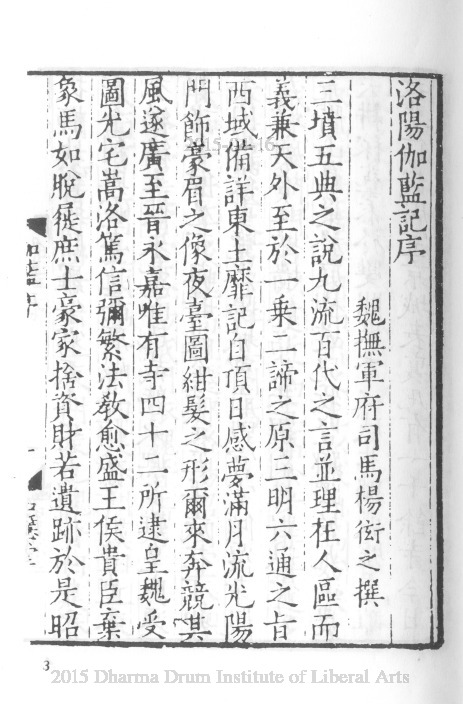 洛陽伽藍記序
魏撫軍府司馬楊衒之撰
三墳五典之說九流百代之言並理在人區而
義兼天外至於一乗二諦之原三明六通之旨
西域備詳東土靡記自頂日感夢滿月流光陽
門飾豪眉之像夜臺圖紺髮之形爾來奔競其
風遂廣至晉永嘉唯有寺四十二所逮皇魏受
圖光宅嵩洛篤信彌繁法教愈盛王侯貴臣棄
象馬如脫屣庶士豪家捨資財若遺跡於是昭
3
2015 Dharma Drum Institute of Liberal Arts